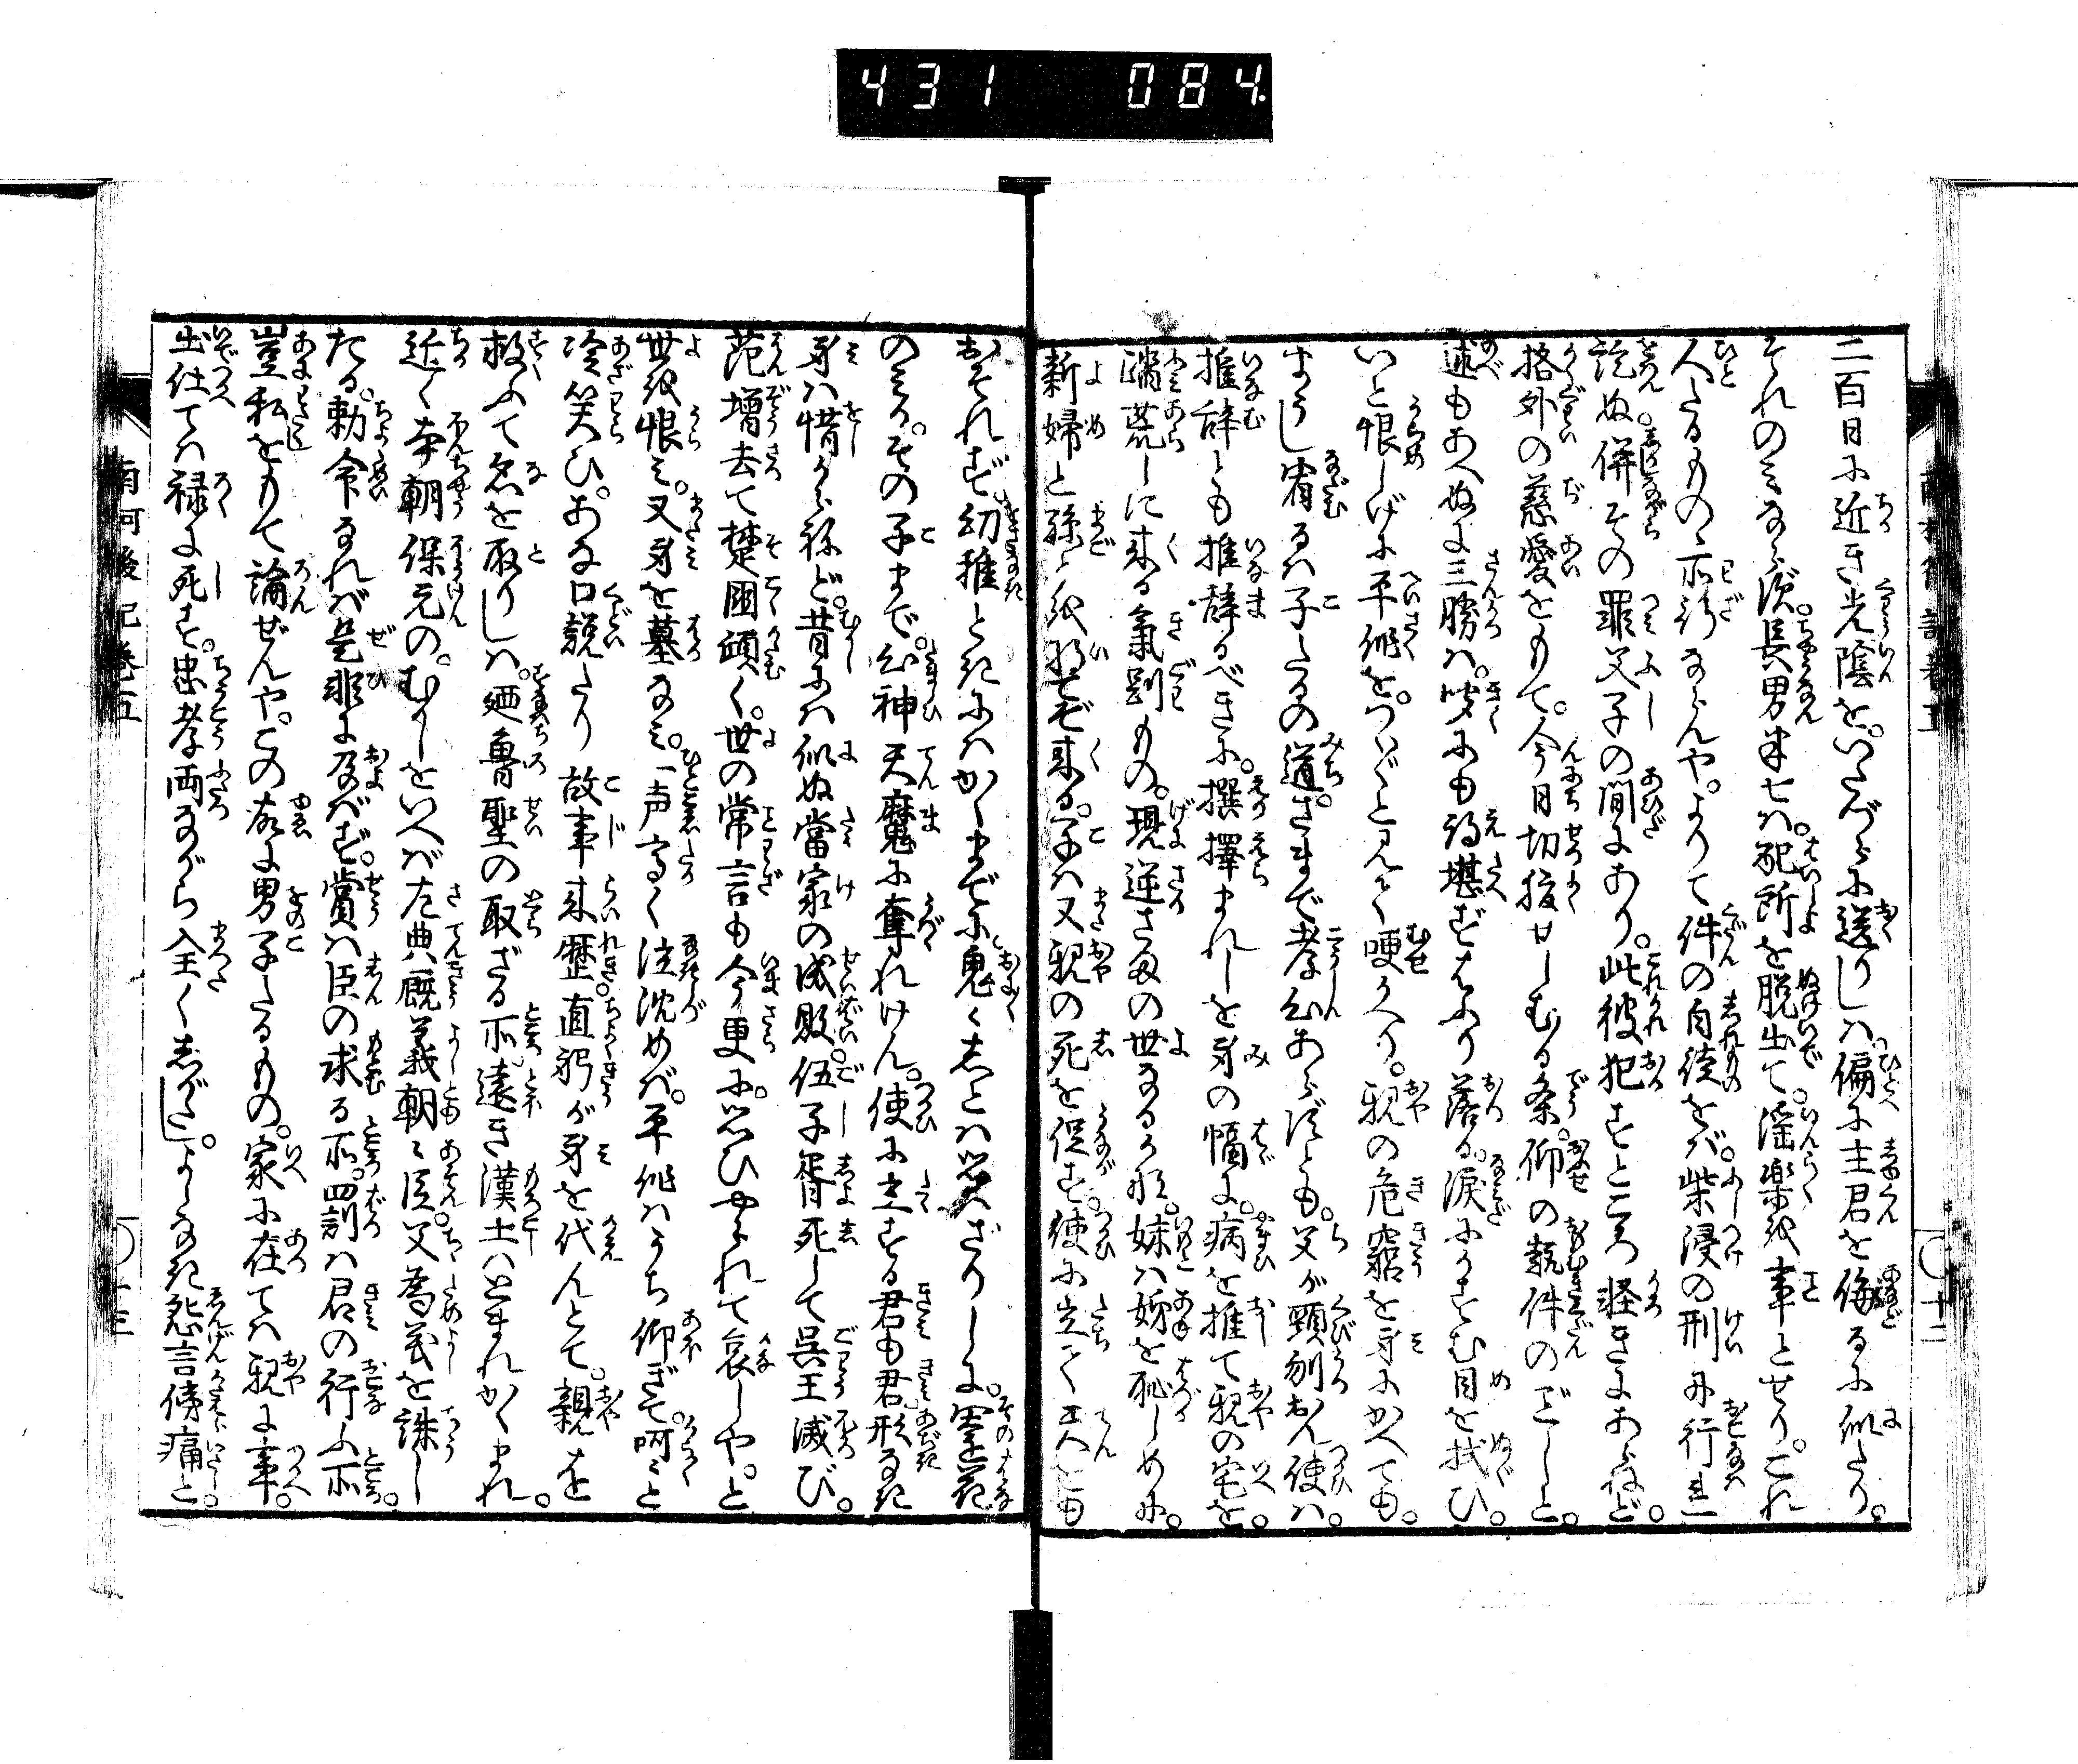 431 084
二百日に近き光陰を。いたづらに送りしは。偏に主君を侮るに似たり。
それのみならず。長男半七は。配所を脱出て。淫楽を事とせり。これ
人たるものゝ所行ならんや。よりて件の白徒をば。柴浸の刑に行れ
訖ぬ。併その罪父子の間にあり。此彼犯すところ軽きにあらねど。
格外の慈愛をもて。今日切腹せしむる条。仰の趣件のごとしと。
述もあへぬに三勝は。聞にも得堪ずはふり落る。涙にかすむ目を拭ひ。
いと恨しげに平作を。つく／＼と見て哽かへり。親の危窮を身にかへても。
まうし宥るは子たるの道。さまで孝心あらずとも。父が頸刎ん使は。
推辞とも推辞るべきに。撰擇まれしを身の幅に。病を推て親の宅を。
蹈荒しに来る氣到もの。現逆さまの世なるかな。妹は姉を恥しめに。
新婦と孫とを将てぞ来る。子は又親の死を促す。使に立て天をも
おそれず。幼稚ときにはかくまでに鬼々しとは思はざりしに。園花
のみか。その子まで。心神天魔に奪れけん。使に立する君も君。形なき
身は惜からねど。昔には似ぬ當家の成敗。伍子胥死して呉王滅び。
范増去て楚囲頻く。世の常言も今更に。思ひやられて哀しや。と
世を恨み。又身を墓なみ。一声高く泣沈めば。平作はうち仰ぎて。呵々と
冷笑ひ。あな口説たり故事来歴。直躬が身を代んとて。親を
救ふて名を取りしは。廼魯聖の取ざる所。遠き漢土はとまれかくまれ。
近く本朝保元の。むかしをいへば左典厩義朝々臣。父為義を誅し
たる。勅命なれば是非に及ばず。賞は臣の求る所。罰は君の行ふ所。
豈私をもて論ぜんや。この故に男子たるもの。家に在ては親に事。
出仕ては禄に死す。忠孝両ながら全くしがたし。よしなき怨言傍痛と。
南柯後記巻五